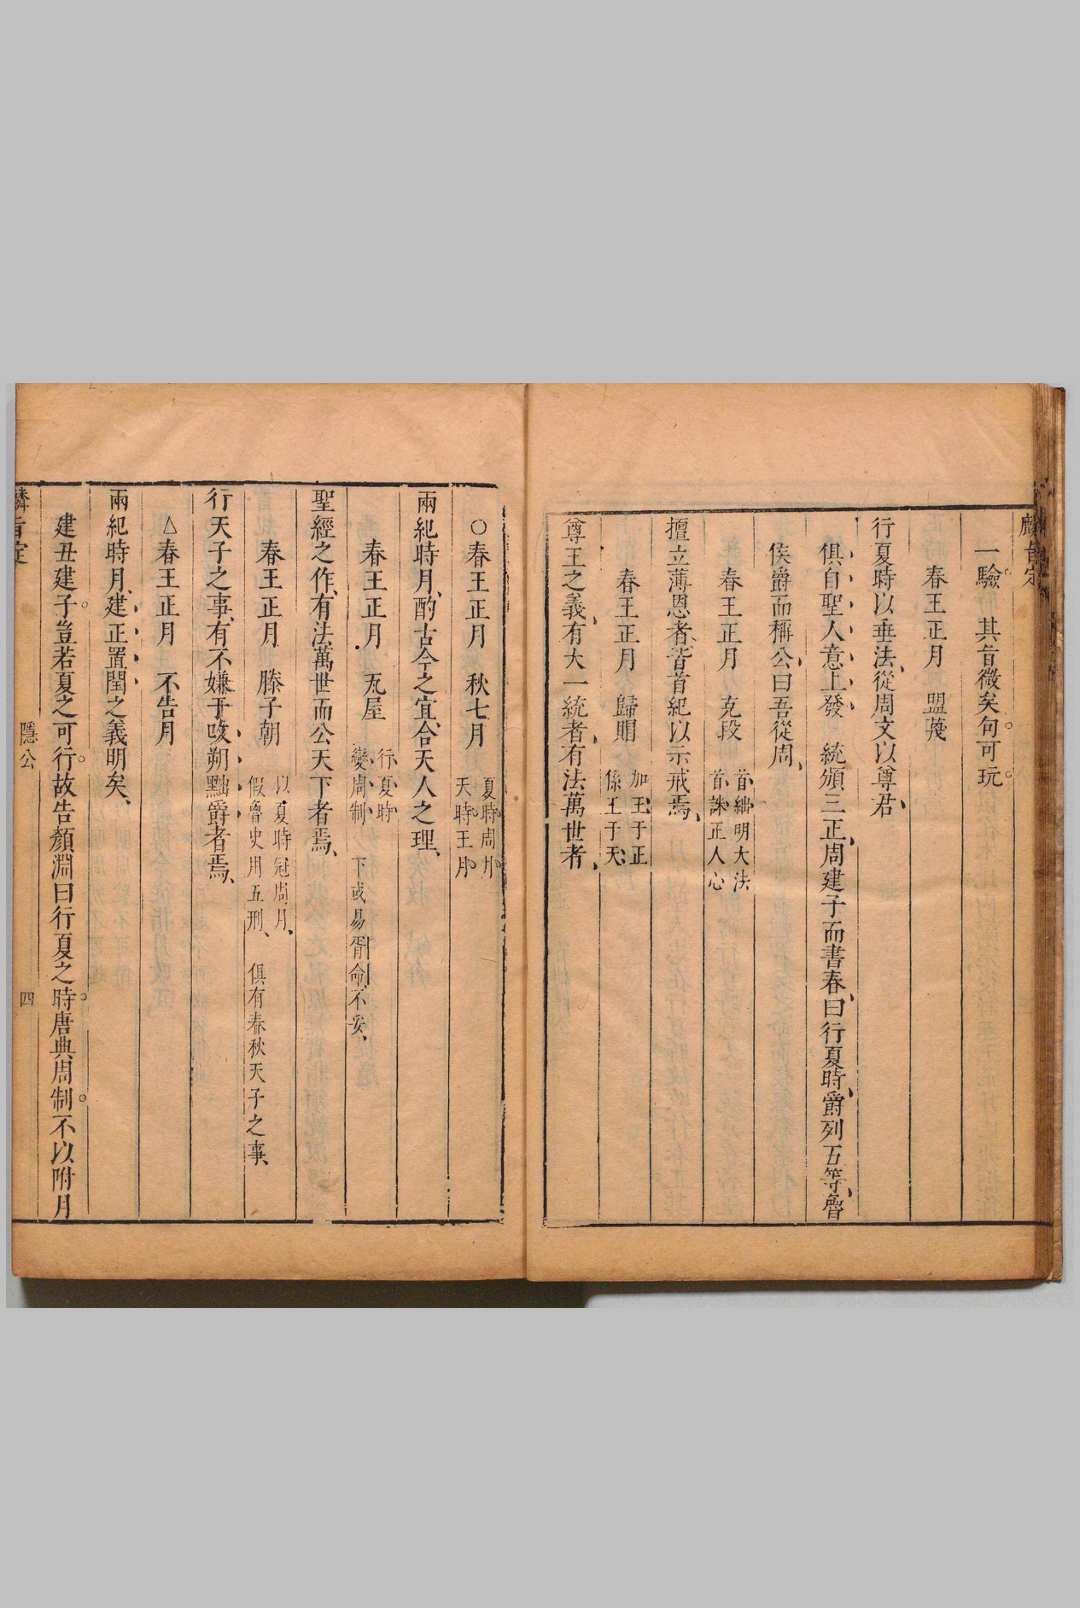 麟旨定
一驗 其旨微矣句可玩
春王正月 盟蔑
行夏時以垂法從周文以尊君
俱自聖人意上發 統頒三正周建子而書春曰行夏時爵列五等魯
侯爵而稱公曰吾從周
春王正月 克段 首絀明大法 首誅正人心
擅立薄恩者皆首紀以示戒焉
春王正月 歸賵 加王于正 係王于天
尊王之義有大一統者有法萬世者
○春王正月 秋七月 夏時周月 天時王月
兩紀時月酌古今之宜合天人之理
春王正月 瓦屋 行夏時 變周制 下或易胥命不妥
聖經之作有法萬世而公天下者焉
春王正月 滕子朝 以夏時冠周月 假魯史用五刑 俱有春秋天子之事
行天子之事有不嫌于改朔黜爵者焉
△春王正月 不告月
兩紀時月建正置閏之義明矣
建丑建子豈若夏之可行故告顏淵曰行夏之時唐典周制不以附月
麟旨定 隱公 四